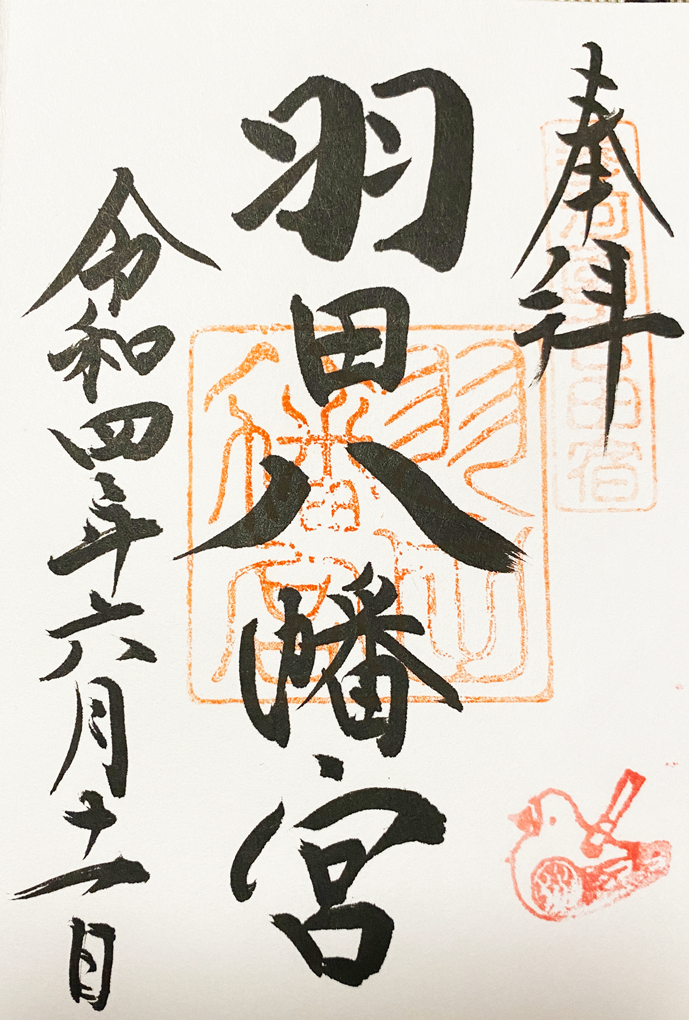 奉拝
羽田八幡宮
令和四年六月十一日